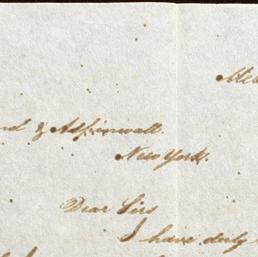 & Aspinwall.
New York.
Dear Sirs
I have duly